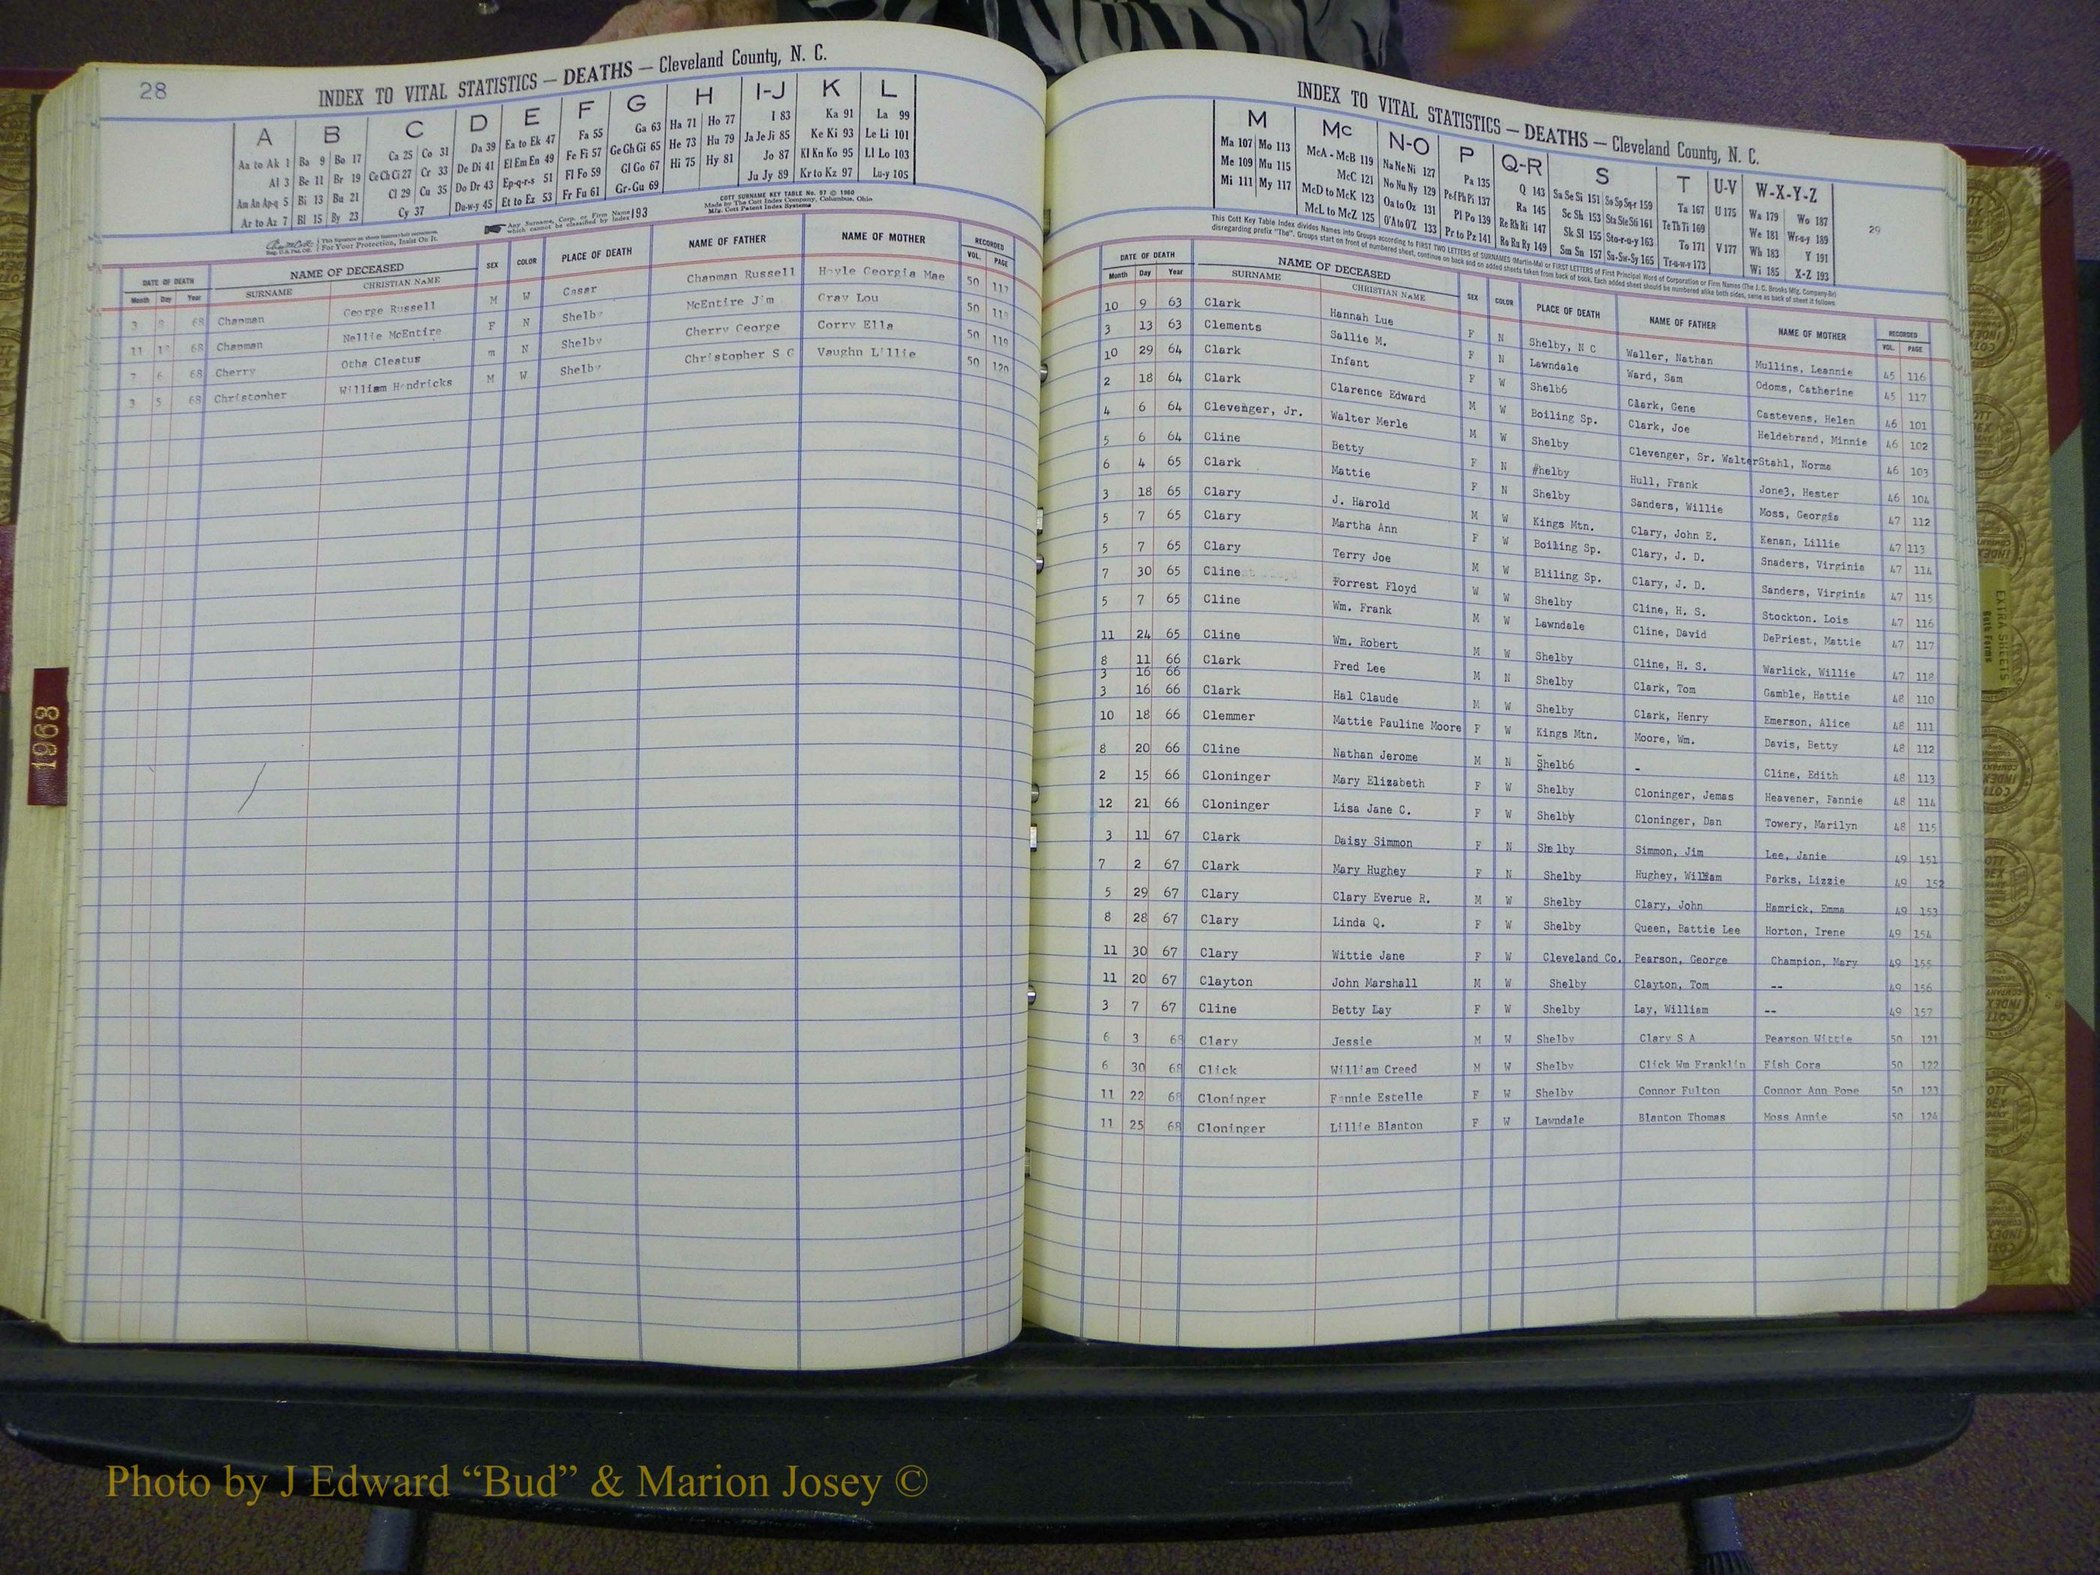 28
INDEX TO VITAL STATISTICS — DEATHS — Cleveland County, N. C.
A B C D E F G H I-J K L
Aa to Ak 1 Ba 9 Bo 17 Ca 25 Co 31 Da 39 Ea to Ek 47 Fa 55 Ga 63 Ha 71 Ho 77 I 83 Ka 91 La 99
Al 3 Be 11 Br 19 Ce Ch Ci 27 Cr 33 De Di 41 El Em En 49 Fe Fi 57 Ge Gh Gi 65 He 73 Hu 79 Ja Je Ji 85 Ke Ki 93 Le Li 101
Am An Ap-q 5 Bi 13 Bu 21 Cl 29 Cu 35 Do Dr 43 Ep-q-r-s 51 Fl Fo 59 Gl Go 67 Hi 75 Hy 81 Jo 87 Kl Kn Ko 95 Ll Lo 103
Ar to Az 7 Bl 15 By 23 Cy 37 Du-w-y 45 Et to Ez 53 Fr Fu 61 Gr-Gu 69 Ju Jy 89 Kr to Kz 97 Lu-y 105
For Your Protection, Insist On It.
Any Surname, Corp. or Firm Name which cannot be classified by Index 193
COTT SURNAME KEY TABLE No. 97 © 1960
Made by The Cott Index Company, Columbus, Ohio
M'f'g. Cott Patent Index Systems
DATE OF DEATH NAME OF DECEASED SEX COLOR PLACE OF DEATH NAME OF FATHER NAME OF MOTHER RECORDED
Month Day Year SURNAME CHRISTIAN NAME VOL. PAGE
3 9 68 Chapman George Russell M W Casar Chapman Russell Hoyle Georgia Mae 50 117
11 68 Chapman Nellie McEntire F N Shelby McEntire Jim Gray Lou 50 118
7 6 68 Cherry Otha Cleatus m N Shelby Cherry George Corry Ella 50 119
3 5 68 Christopher William Hendricks M W Shelby Christopher S G Vaughn Lillie 50 120
1968
INDEX TO VITAL STATISTICS — DEATHS — Cleveland County, N. C.
M Mc N-O P Q-R S T U-V W-X-Y-Z
29
Ma 107 Mo 113 McA - McB 119 Na Ne Ni 127 Pa 135 Q 143 Sa Se Si 151 So Sp Sq-r 159 Ta 167 U 175 Wa 179 Wo 187
Me 109 Mu 115 McC 121 No Nu Ny 129 Pe-f Ph Pi 137 Ra 145 Sc Sh 153 Sta Ste Sti 161 Te Th Ti 169 We 181 Wr-u-y 189
Mi 111 My 117 McD to McK 123 Oa to Oz 131 Pl Po 139 Re Rh Ri 147 Sk Sl 155 Sto-r-u-y 163 To 171 V 177 Wh 183 Y 191
McL to McZ 125 O'A to O'Z 133 Pr to Pz 141 Ro Ru Ry 149 Sm Sn 157 Su-Sw-Sy 165 Tr-u-w-y 173 Wi 185 X-Z 193
This Cott Key Table Index divides Names into Groups according to FIRST TWO LETTERS of SURNAMES (Martin-Ma) or FIRST LETTERS of First Principal Word of Corporation or Firm Names (The J. C. Brooks Mfg. Company-Br)
disregarding prefix "The". Groups start on front of numbered sheet, continue on back and on added sheets taken from back of book. Each added sheet should be numbered alike both sides, same as back of sheet it follows
DATE OF DEATH NAME OF DECEASED SEX COLOR PLACE OF DEATH NAME OF FATHER NAME OF MOTHER RECORDED
Month Day Year SURNAME CHRISTIAN NAME VOL. PAGE
10 9 63 Clark Hannah Lue F N Shelby, N C Waller, Nathan Mullins, Leannie 45 116
3 13 63 Clements Sallie M. F N Lawndale Ward, Sam Odoms, Catherine 45 117
10 29 64 Clark Infant F W Shelb6 Clark, Gene Castevens, Helen 46 101
2 18 64 Clark Clarence Edward M W Boiling Sp. Clark, Joe Heldebrand, Minnie 46 102
4 6 64 Clevenger, Jr. Walter Merle M W Shelby Clevenger, Sr. Walter Stahl, Norma 46 103
5 6 64 Cline Betty F N #helby Hull, Frank Jone3, Hester 46 104
6 4 65 Clark Mattie F N Shelby Sanders, Willie Moss, Georgia 47 112
3 18 65 Clary J. Harold M W Kings Mtn. Clary, John E. Kenan, Lillie 47 113
5 7 65 Clary Martha Ann F W Boiling Sp. Clary, J. D. Snaders, Virginia 47 114
5 7 65 Clary Terry Joe M W Bliling Sp. Clary, J. D. Sanders, Virginia 47 115
7 30 65 Cline Forrest Floyd W W Shelby Cline, H. S. Stockton. Lois 47 116
5 7 65 Cline Wm. Frank M W Lawndale Cline, David DePriest, Mattie 47 117
11 24 65 Cline Wm. Robert M W Shelby Cline, H. S. Warlick, Willie 47 118
8 11 66 Clark Fred Lee M N Shelby Clark, Tom Gamble, Hattie 48 110
3 16 66
3 16 66 Clark Hal Claude M W Shelby Clark, Henry Emerson, Alice 48 111
10 18 66 Clemmer Mattie Pauline Moore F W Kings Mtn. Moore, Wm. Davis, Betty 48 112
8 20 66 Cline Nathan Jerome M N Shelb6 - Cline, Edith 48 113
2 15 66 Cloninger Mary Elizabeth F W Shelby Cloninger, Jemas Heavener, Fannie 48 114
12 21 66 Cloninger Lisa Jane C. F W Shelby Cloninger, Dan Towery, Marilyn 48 115
3 11 67 Clark Daisy Simmon F N Shelby Simmon, Jim Lee, Janie 49 151
7 2 67 Clark Mary Hughey F N Shelby Hughey, William Parks, Lizzie 49 152
5 29 67 Clary Clary Everue R. M W Shelby Clary, John Hamrick, Emma 49 153
8 28 67 Clary Linda Q. F W Shelby Queen, Battie Lee Horton, Irene 49 154
11 30 67 Clary Wittie Jane F W Cleveland Co. Pearson, George Champion, Mary 49 155
11 20 67 Clayton John Marshall M W Shelby Clayton, Tom -- 49 156
3 7 67 Cline Betty Lay F W Shelby Lay, William -- 49 157
6 3 68 Clary Jessie M W Shelby Clary S A Pearson Wittie 50 121
6 30 68 Click William Creed M W Shelby Click Wm Franklin Fish Cora 50 122
11 22 68 Cloninger Fannie Estelle F W Shelby Connor Fulton Connor Ann Pope 50 123
11 25 68 Cloninger Lillie Blanton F W Lawndale Blanton Thomas Moss Annie 50 124
EXTRA SHEETS
Photo by J Edward “Bud” & Marion Josey ©